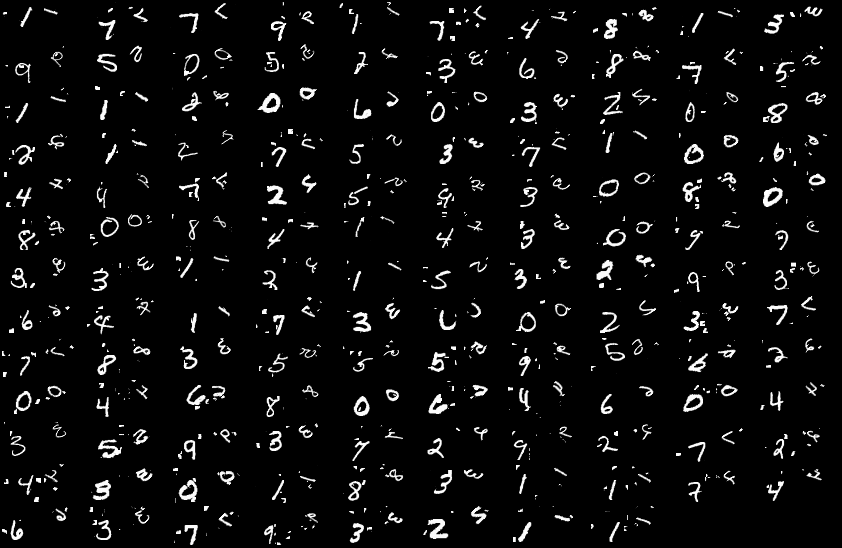 1 7 7 9 1 7 4 8 1 3
9 5 0 5 2 3 6 8 7 5
1 1 2 0 6 0 3 2 0 8
2 1 2 7 5 3 7 1 0 6
4 9 7 2 5 9 3 0 8 0
8 0 8 4 1 4 3 0 9 7
3 3 1 2 1 5 3 2 9 3
6 4 1 7 3 6 0 2 3 7
7 8 3 5 5 5 9 5 6 2
0 4 6 8 0 6 4 6 0 4
3 5 9 3 7 2 9 2 7 2
4 3 0 1 8 3 1 1 7 4
6 3 7 9 3 2 1 1